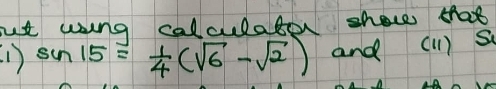 ut using calculator show that
(i) sin 15 = 1/4 (√6 - √2) and (ii) S